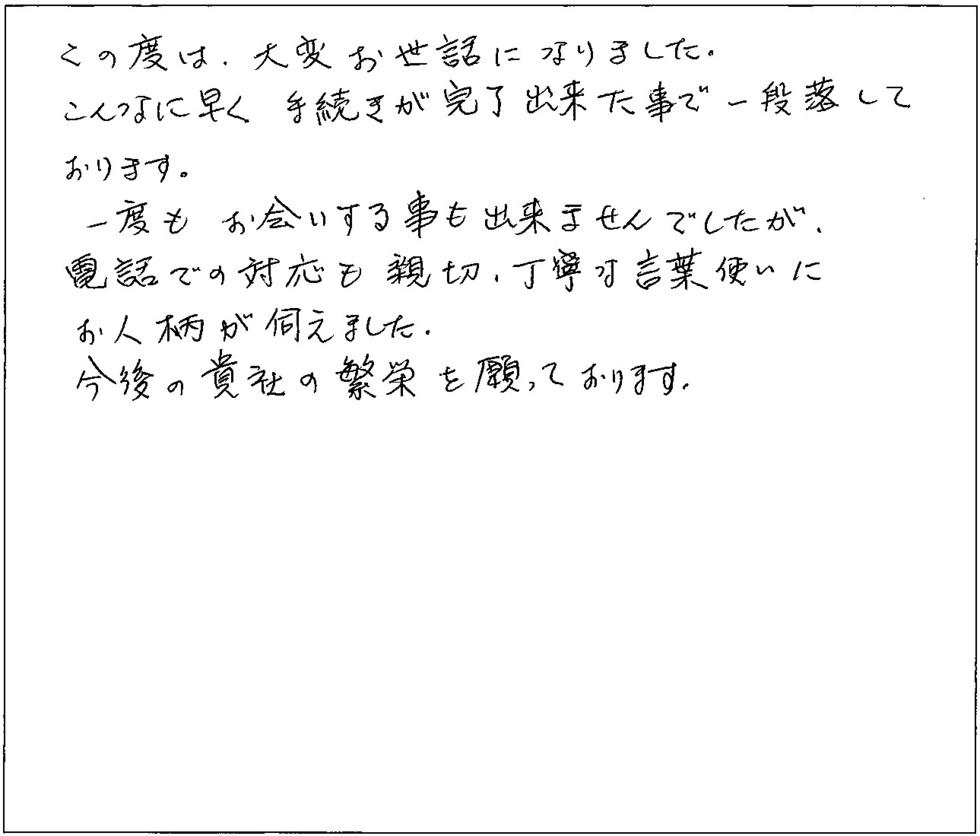 この度は、大変お世話になりました。
こんなに早く手続きが完了出来た事で一段落して
おります。
一度もお会いする事も出来ませんでしたが、
電話での対応も親切、丁寧な言葉使いに
お人柄が伺えました。
今後の貴社の繁栄を願っております。